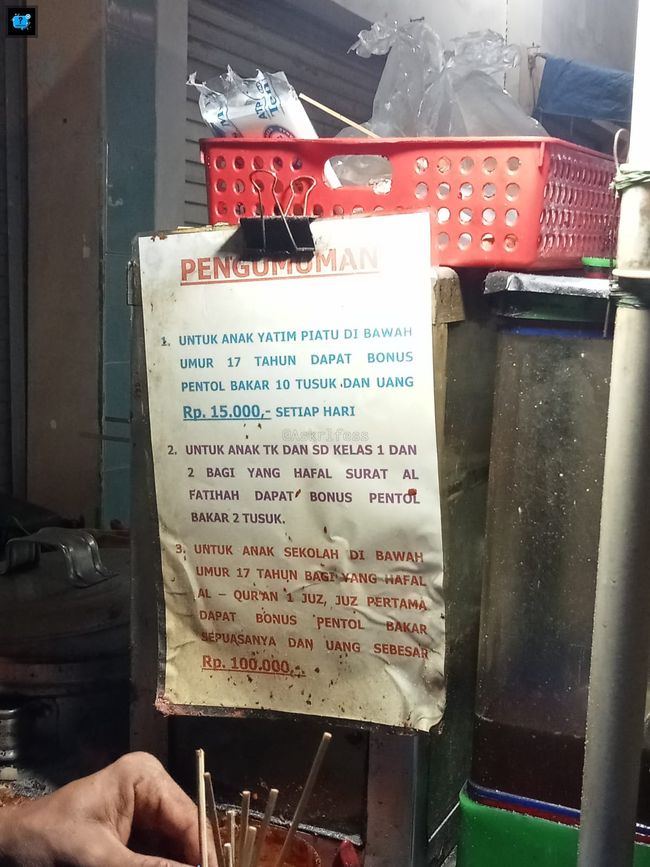 PENGUMUMAN
1. UNTUK ANAK YATIM PIATU DI BAWAH
UMUR 17 TAHUN DAPAT BONUS
PENTOL BAKAR 10 TUSUK DAN UANG
Rp. 15.000,- SETIAP HARI
@Askrlfess
2. UNTUK ANAK TK DAN SD KELAS 1 DAN
2 BAGI YANG HAFAL SURAT AL
FATIHAH DAPAT BONUS PENTOL
BAKAR 2 TUSUK.
3. UNTUK ANAK SEKOLAH DI BAWAH
UMUR 17 TAHUN BAGI YANG HAFAL
AL – QUR'AN 1 JUZ, JUZ PERTAMA
DAPAT BONUS PENTOL BAKAR
SEPUASANYA DAN UANG SEBESAR
Rp. 100.000,-